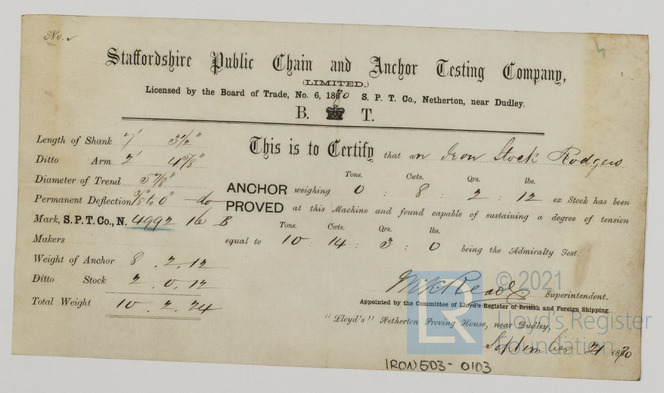 No.
Staffordshire Public Chain and Anchor Testing Company,
(LIMITED.)
Licensed by the Board of Trade, No. 6, 1870 S. P. T. Co., Netherton, near Dudley.
B. T.
This is to Certify that an Iron Stock Rodgers
Tons. Cwts. Qrs. lbs.
ANCHOR weighing 0 : 8 : 2 : 12 ex Stock has been
PROVED at this Machine and found capable of sustaining a degree of tension
Tons. Cwts. Qrs. lbs.
equal to 10 : 14 : 3 : 0 being the Admiralty Test
Length of Shank 7' 3½"
Ditto Arm 2' 4⅞"
Diameter of Trend 5⅞"
Permanent Deflection do
Mark, S. P. T. Co., N. 4992 16 B
Makers
Weight of Anchor 8 . 2 . 12
Ditto Stock 2 . 0 . 12
Total Weight 10 . 2 . 24
Superintendent.
Appointed by the Committee of Lloyd's Register of British and Foreign Shipping.
"Lloyd's" Netherton Proving House, near Dudley,
September 21 1870
IRON503-0103
© 2021
Lloyd's Register
Foundation
LR